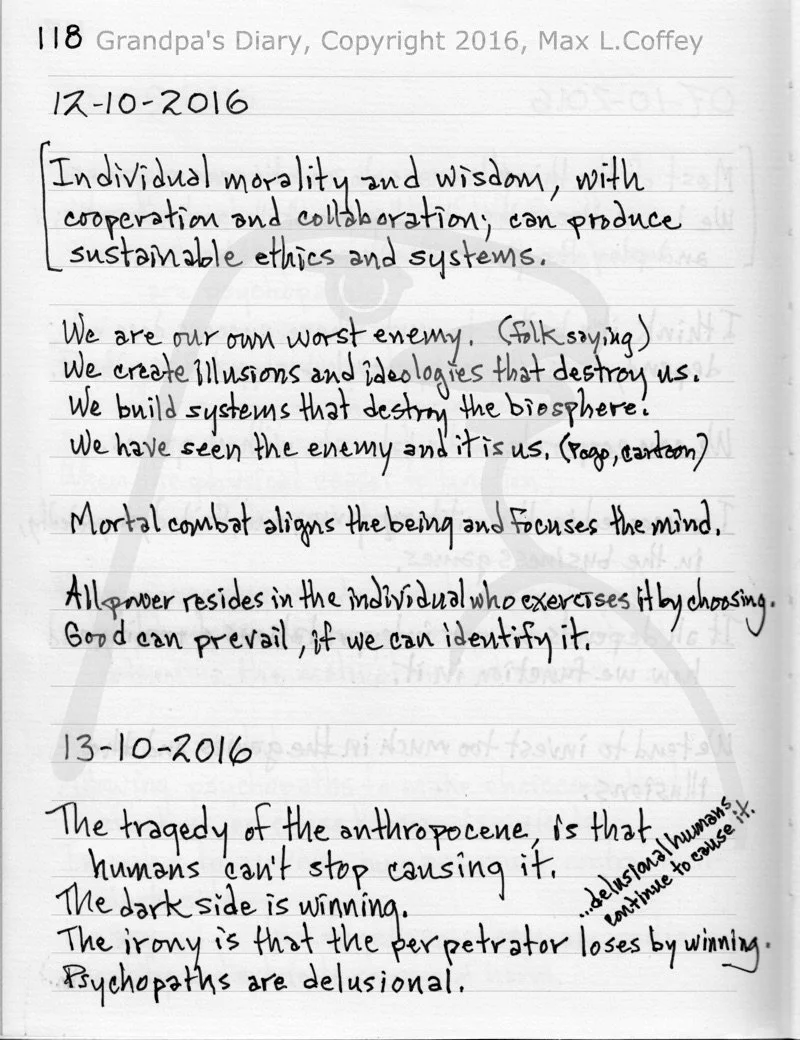 118 Grandpa's Diary, Copyright 2016, Max L.Coffey
12-10-2016
Individual morality and wisdom, with
cooperation and collaboration; can produce
sustainable ethics and systems.
We are our own worst enemy. (folk saying)
We create illusions and ideologies that destroy us.
We build systems that destroy the biosphere.
We have seen the enemy and it is us. (Pogo, cartoon)
Mortal combat aligns the being and focuses the mind.
All power resides in the individual who exercises it by choosing.
Good can prevail, if we can identify it.
13-10-2016
The tragedy of the anthropocene, is that
humans can't stop causing it.
...delusional humans
continue to cause it.
The dark side is winning.
The irony is that the perpetrator loses by winning.
Psychopaths are delusional.